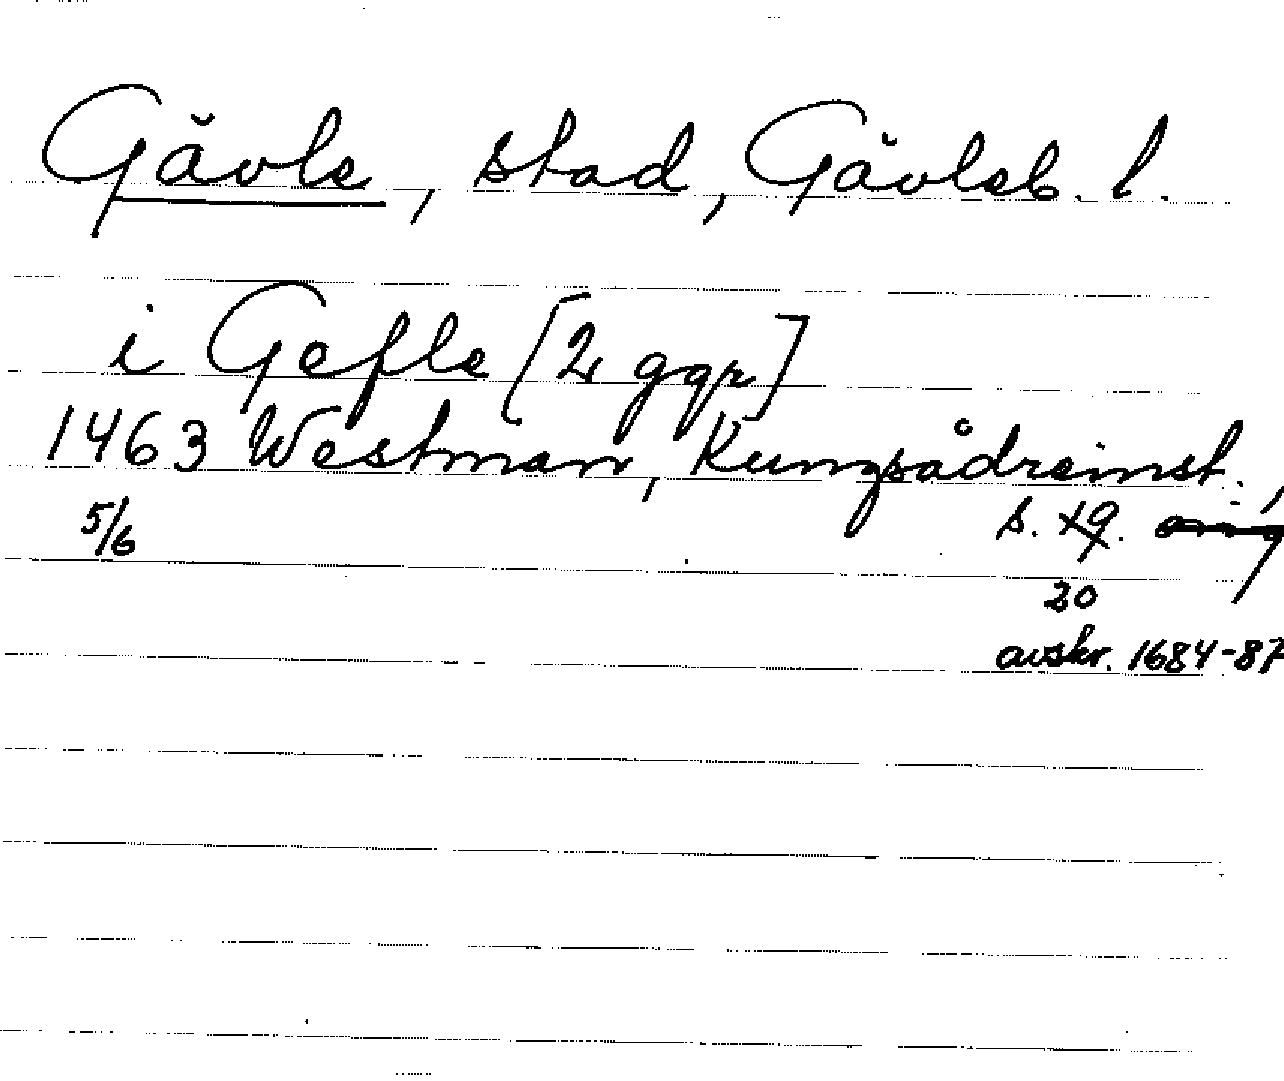 Gävle, stad, Gävleb. l.
i Gefle [2 ggr]
1463 Westman, Kungsådreinst.,
5/6 s. 19. orig
20
avskr. 1684-87